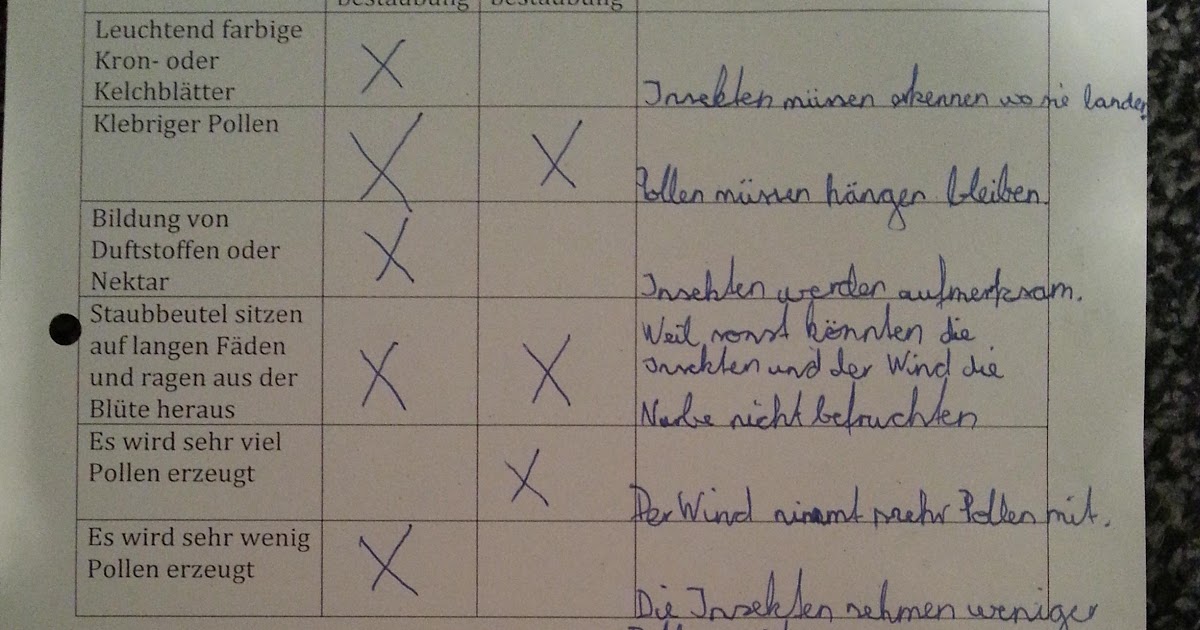 bestäubung bestäubung
Leuchtend farbige
Kron- oder
Kelchblätter
X
Insekten müssen erkennen wo sie landen
Klebriger Pollen
X X
Pollen müssen hängen bleiben.
Bildung von
Duftstoffen oder
Nektar
X
Insekten werden aufmerksam.
Staubbeutel sitzen
auf langen Fäden
und ragen aus der
Blüte heraus
X X
Weil sonst könnten die
Insekten und der Wind die
Narbe nicht befruchten
Es wird sehr viel
Pollen erzeugt
X
Der Wind nimmt mehr Pollen mit.
Es wird sehr wenig
Pollen erzeugt
X
Die Insekten nehmen weniger